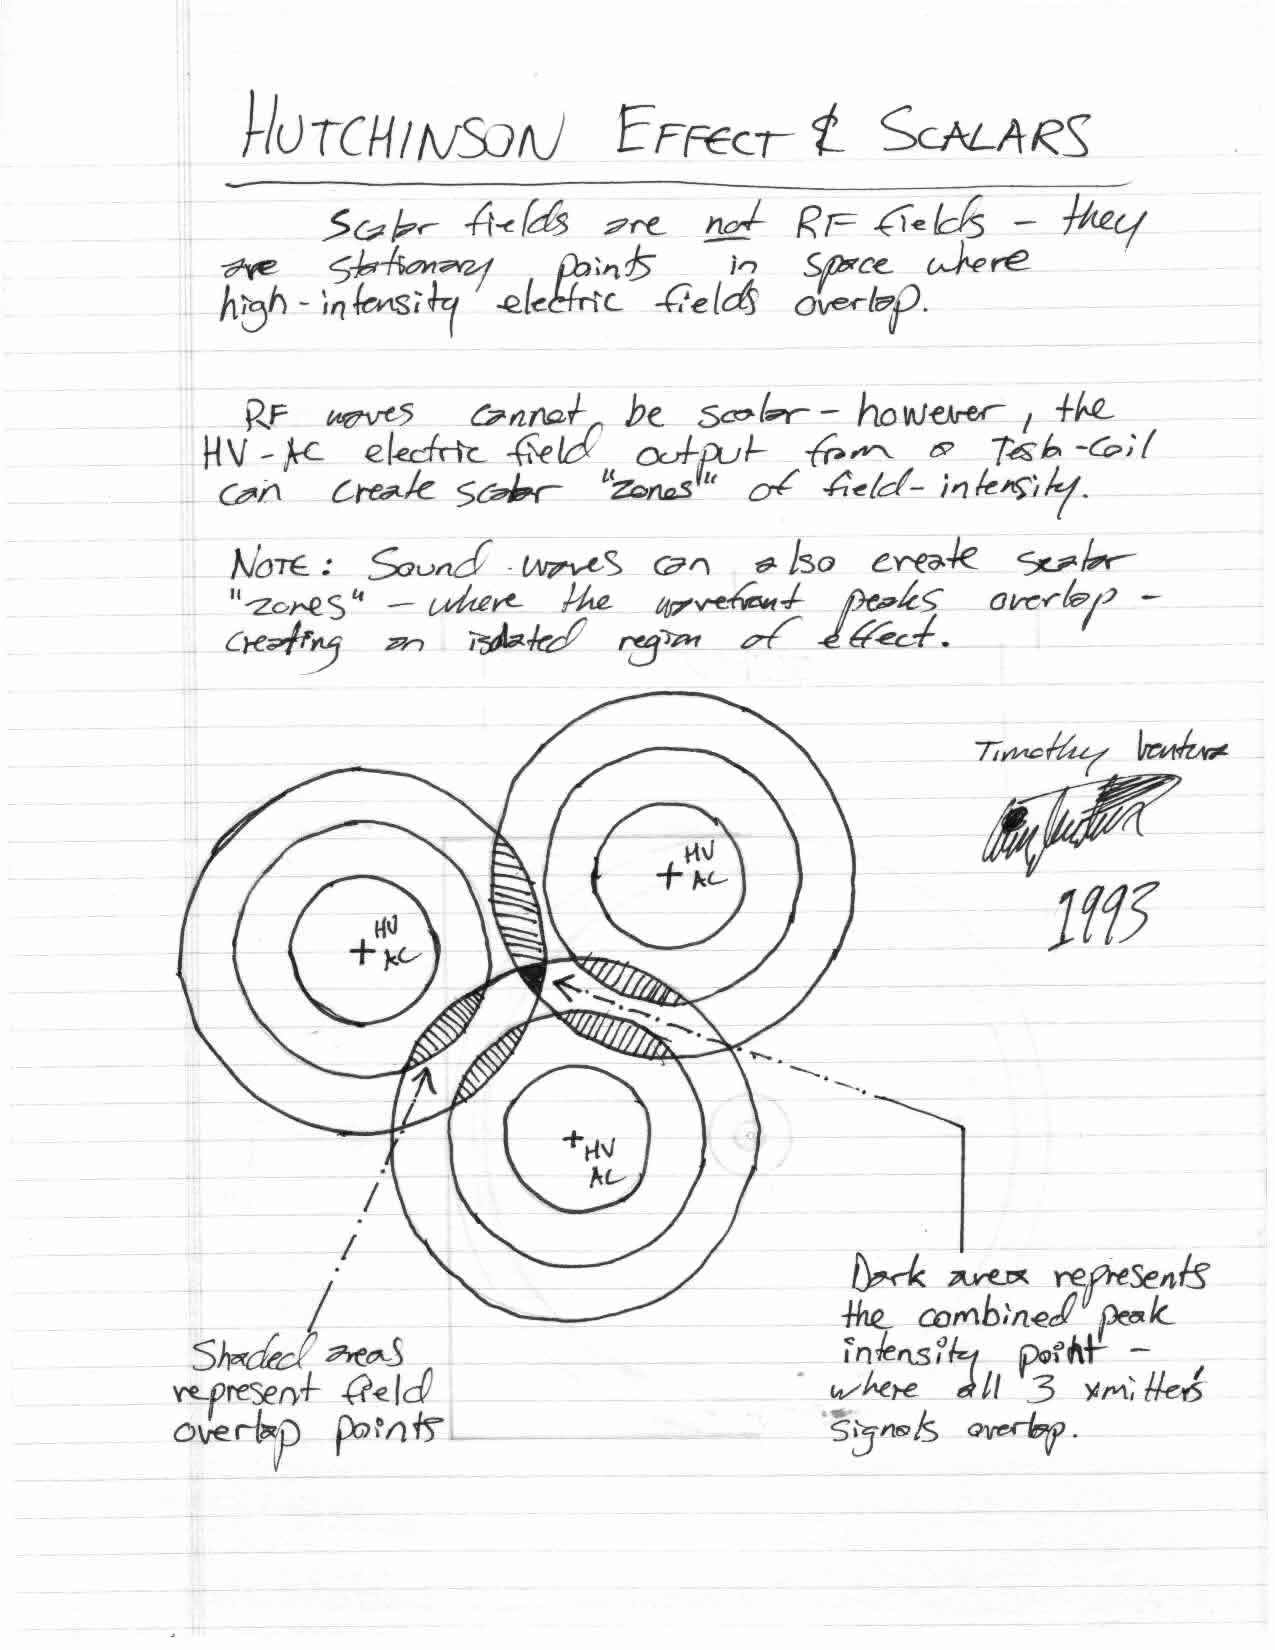 HUTCHINSON EFFECT & SCALARS
Scalar fields are not RF fields - they
are stationary points in space where
high-intensity electric fields overlap.
RF waves cannot be scalar - however, the
HV-AC electric field output from a Tesla-coil
can create scalar "zones" of field-intensity.
NOTE: Sound waves can also create scalar
"zones" - where the wavefront peaks overlap -
creating an isolated region of effect.
Timothy Ventura
1993
+ HV
AC
+ HV
AC
+ HV
AC
Dark area represents
the combined peak
intensity point -
where all 3 xmitter's
signals overlap.
Shaded areas
represent field
overlap points